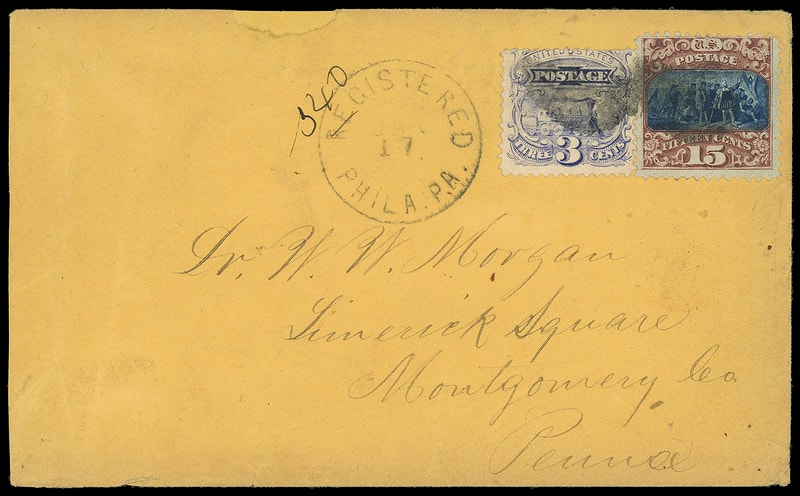 340
REGISTERED
17
PHILA. PA.
UNITED STATES
POSTAGE
THREE 3 CENTS
U.S.
POSTAGE
FIFTEEN CENTS
15
Dr. W. W. Morgan
Limerick Square
Montgomery Co
Penna